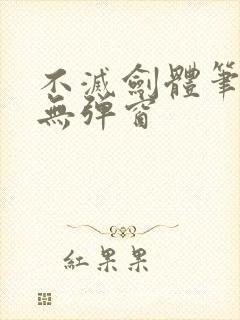 不滅劍體筆
無彈窗
紅果果